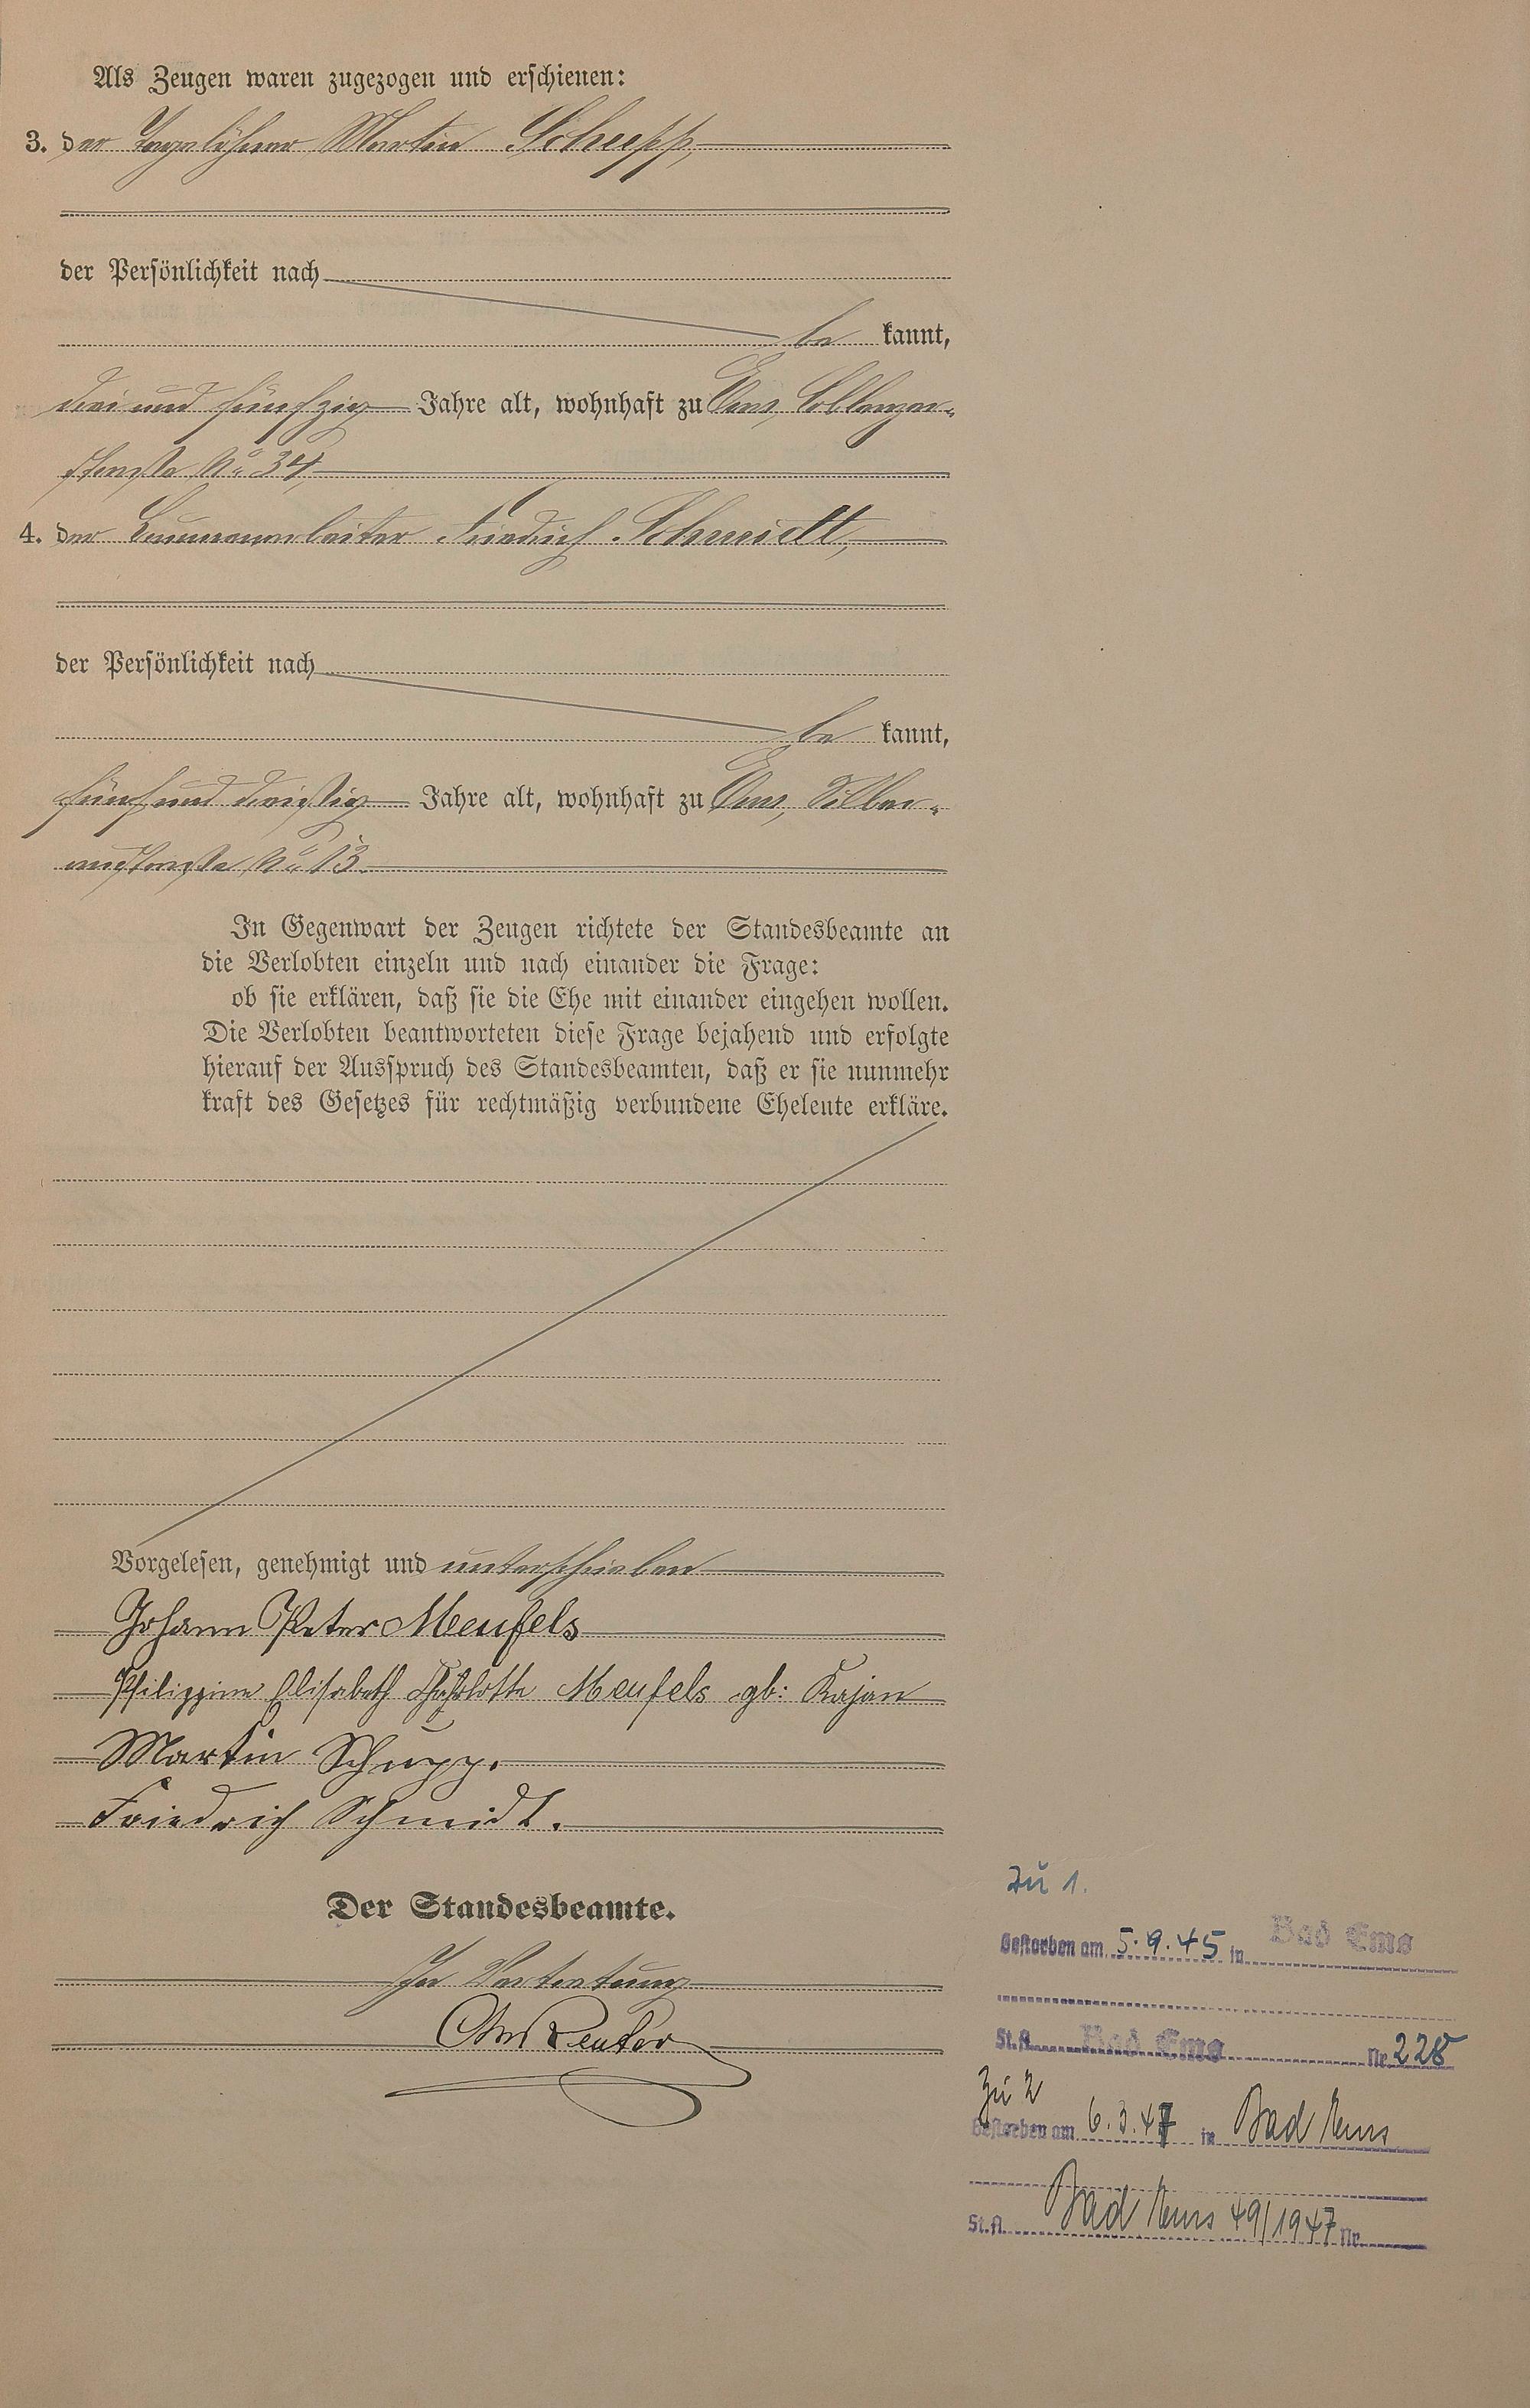 Als Zeugen waren zugezogen und erschienen:
3. der Tagelöhner Martin Schupp,
der Persönlichkeit nach
be kannt,
drei und fünfzig Jahre alt, wohnhaft zu Ems, Coblenzer-
straße No 34,
4. der Brunnenarbeiter Friedrich Schmidt,
der Persönlichkeit nach
be kannt,
fünf und dreißig Jahre alt, wohnhaft zu Ems, Silber-
austraße No 13.
In Gegenwart der Zeugen richtete der Standesbeamte an
die Verlobten einzeln und nach einander die Frage:
ob sie erklären, daß sie die Ehe mit einander eingehen wollen.
Die Verlobten beantworteten diese Frage bejahend und erfolgte
hierauf der Ausspruch des Standesbeamten, daß er sie nunmehr
kraft des Gesetzes für rechtmäßig verbundene Eheleute erkläre.
Vorgelesen, genehmigt und unterschrieben
Johann Peter Meufels
Philippine Elisabeth Charlotte Meufels gb: Kajan
Martin Schupp.
Friedrich Schmidt.
Der Standesbeamte.
In Vertretung
Reuter
Zu 1.
Gestorben am 5.9.45 in Bad Ems
St.A. Bad Ems Nr. 228
Zu 2
Gestorben am 6.3.47 in Bad Ems
St.A. Bad Ems 49/1947 Nr.